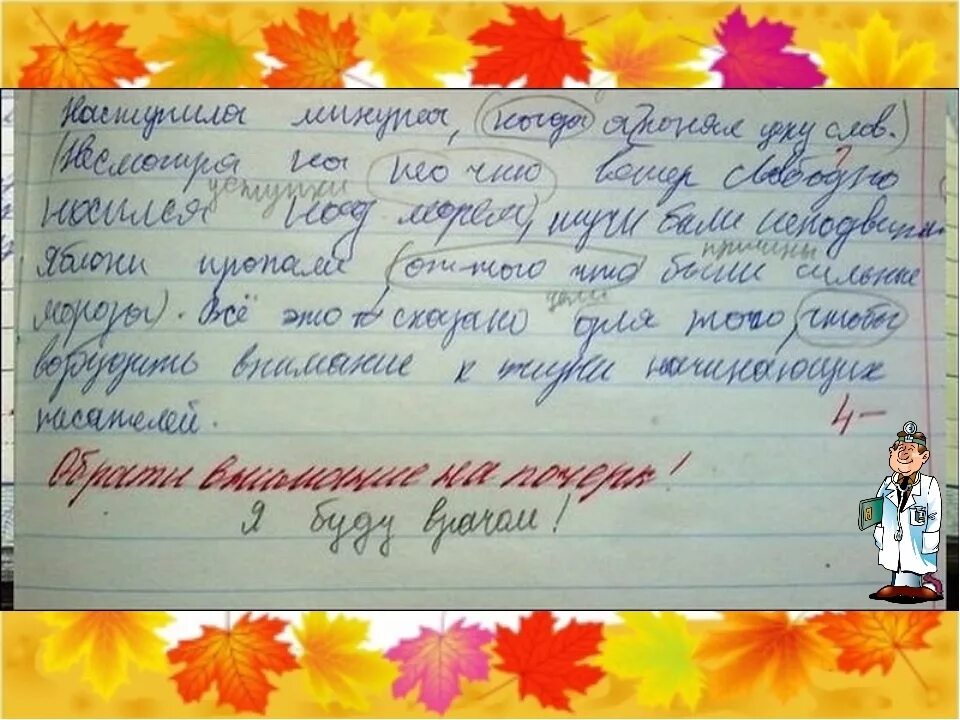 Наступила минута, (когда я понял цену слов.)
(Несмотря на то что ветер свободно
уступки
носился над морем), тучи были неподвижн
причины
Яблони пропали (от того что были сильные
цели
морозы). Всё это сказано для того, чтобы
возбудить внимание к жизни начинающих
писателей.
4-
Обрати внимание на почерк!
Я буду врачом!